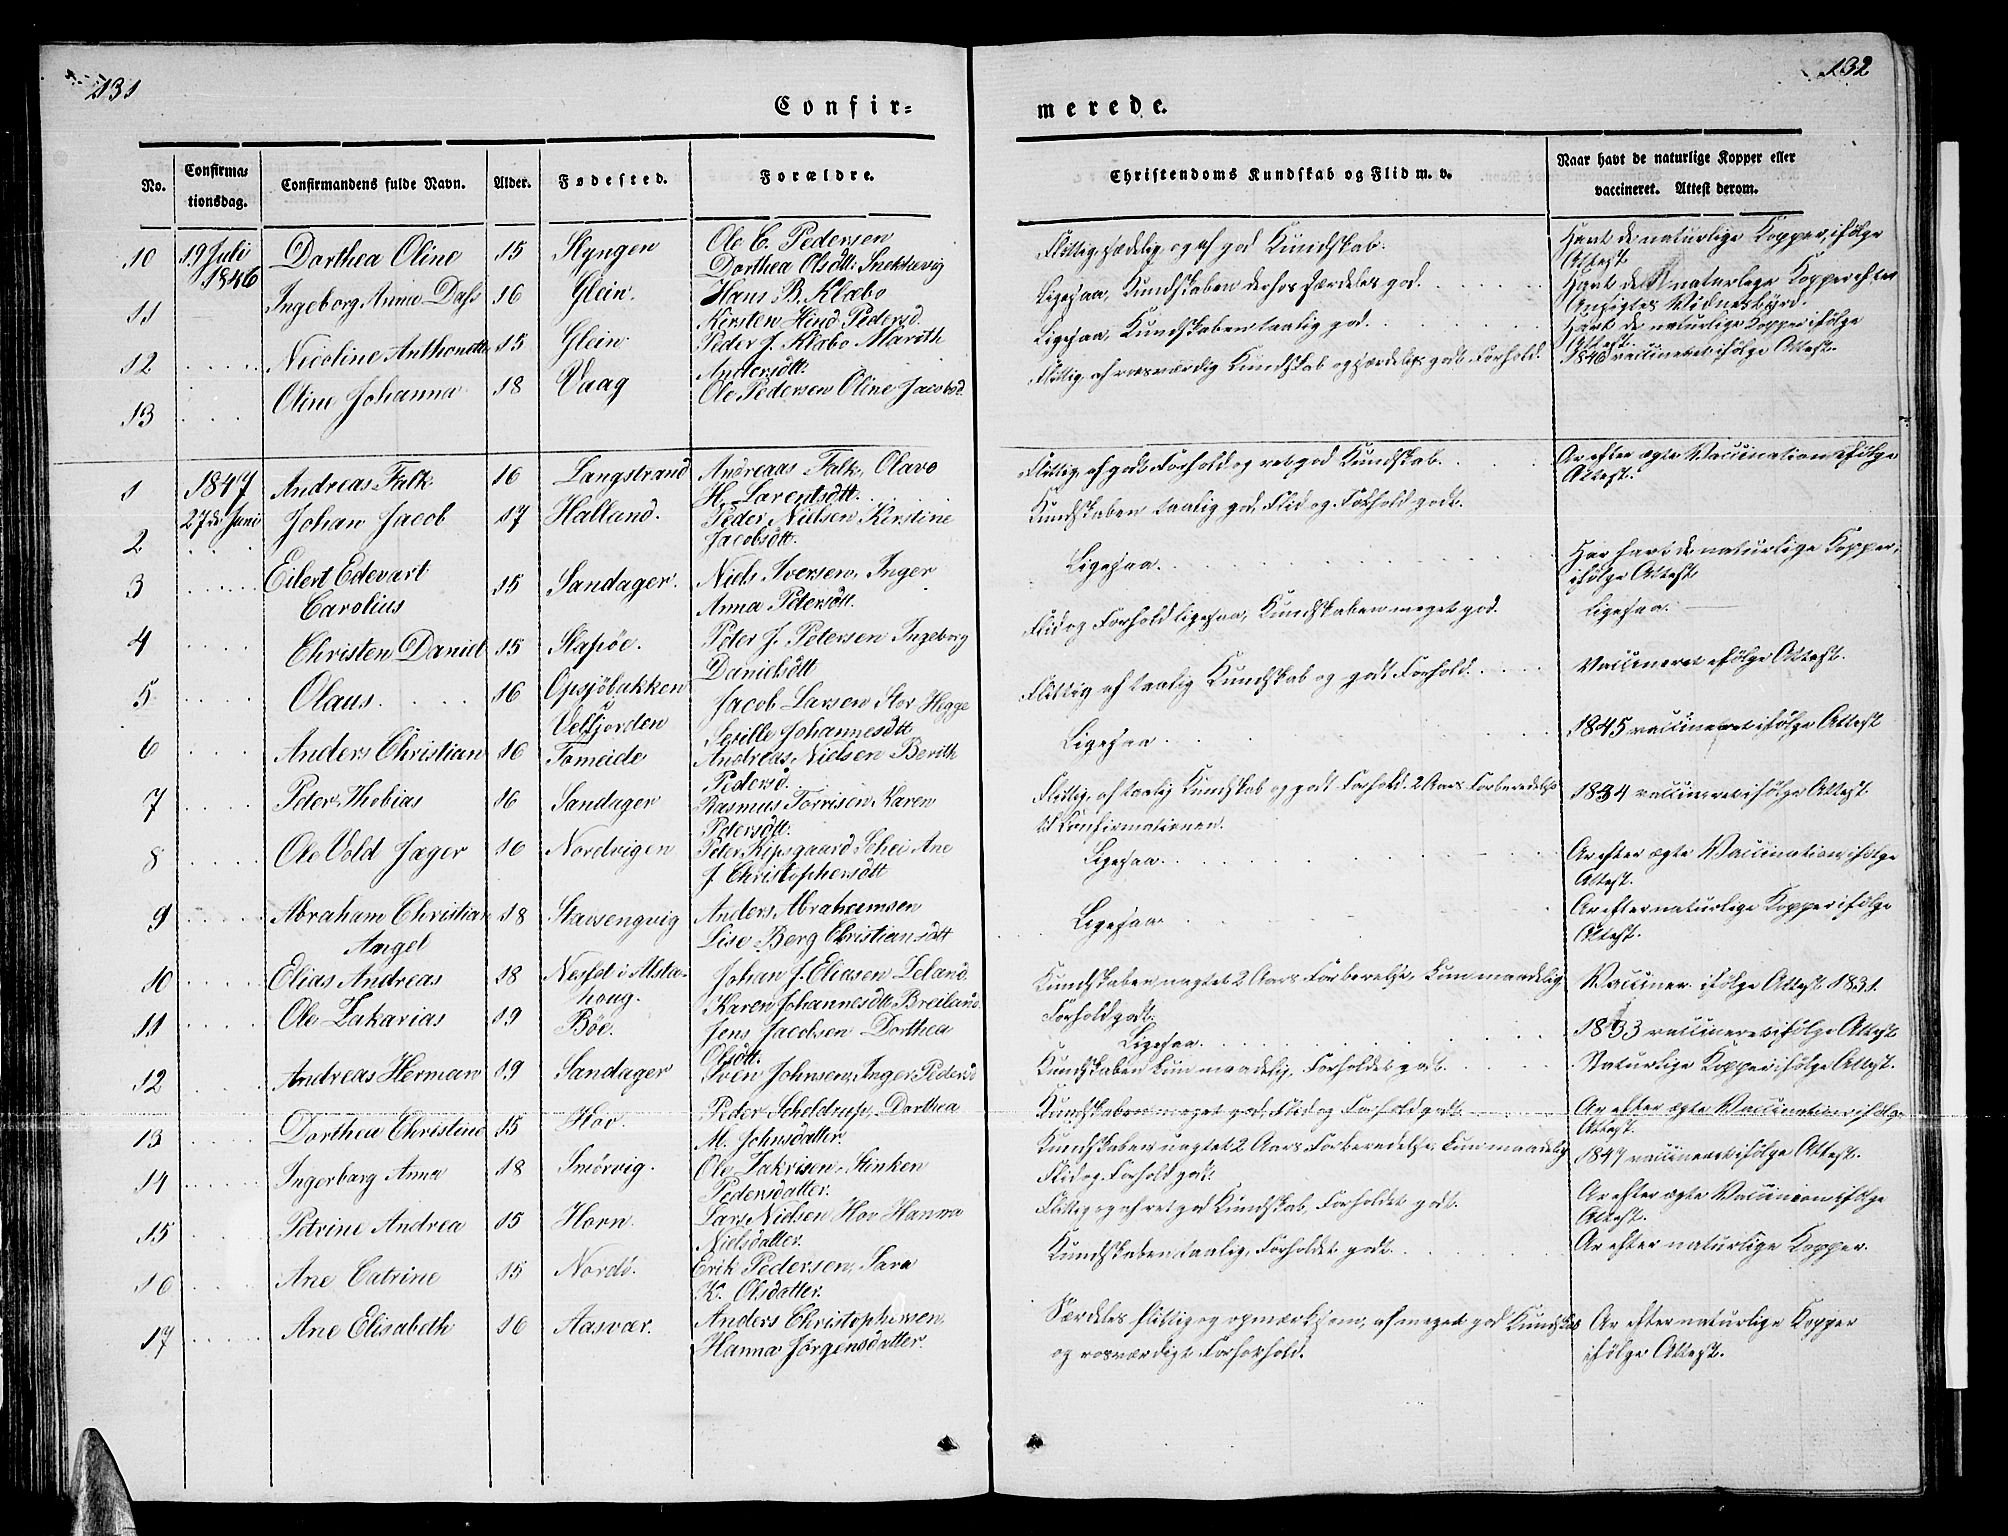 131
132
Confir=
merede.
No.
Confirma=
tionsdag.
Confirmandens fulde Navn.
Alder.
Fødested.
Forældre.
Christendoms Kundskab og Flid m. v.
Naar havt de naturlige Kopper eller
vaccineret. Attest derom.
10 19 Juli 1846 Dorthea Oline 15 Styngen Ole C. Pedersen
Dorthea Olsdtt: Snekkevig
Flittig, sædelig og af god Kundskab.
Havt de naturlige Kopper, ifølge
Attest
11 Ingeborg Anna Dass 16 Glein. Hans B. Klæbo
Kirsten Hind Pedersd.
Ligesaa, Kundskaben derhos særdeles god.
Havt de naturlige Kopper efter
Ansigtes Vidnesbyrd.
12 Nicoline Anthonette 15 Glein Peder J. Klæbo Marith
Andersdtt:
Ligesaa, Kundskaben taalig god.
Havt de naturlige Kopper ifølge
Attest.
13 Oline Johanna 18 Vaag Ole Pedersen Oline Jacobsd.
Flittig, af rosværdig Kundskab og særdeles godt Forhold.
1846 vaccineret ifølge Attest.
1 1847 Andreas Falk. 16 Langstrand Andreaas Falk, Olava
H. Larentsdtt.
Flittig, af godt Forhold og ret god Kundskab.
Ar efter ægte Vaccination ifølge
Attest.
2 27de Juni Johan Jacob 17 Halland. Peder Nielsen Kirstine
Jacobsdtt.
Kundskaben taalig god, Flid og Forhold godt.
3 Eilert Edevart
Carolius 15 Sandager. Niels Iversen, Inger
Anna Petersdtt.
Ligesaa.
Har havt de naturlige Kopper,
ifølge Attest.
4 Christen Daniel 15 Stapøe. Peter J. Petersen Ingeborg
Danielsdtt
Flid og Forhold ligesaa, Kundskaben meget god.
Ligesaa.
5 Olaus. 16 Opsjöbakken
Velfjorden Jacob Larsen Stor Hegge
Sesille Johannesdtt
Flittig af taalig Kundskab og godt Forhold.
Vaccineret ifølge Attest.
6 Anders Christian 16 Tomeide Andreas Nielsen Berith
Pedersd.
Ligesaa.
1845 vaccineret ifølge Attest
7 Peter Thobias 16 Sandager Rasmus Torrisen Karen
Petersdtt:
Flittig, af taalig Kundskab og godt Forhold. 2 Aars Forberedelse
til Konfirmationen.
1834 vaccineret ifølge Attest.
8 Ole Vold Jæger 16 Nordvigen Peter Ripsgaard Schei Ane
J. Christophersdtt
Ligesaa.
Ar efter ægte Vaccination, ifølge
Attest.
9 Abraham Christian
Angel 18 Stavsengvig Anders Abrahamsen
Lise Berg Christiansdtt
Ligesaa.
Ar efter naturlige Kopper ifølge
Attest.
10 Elias Andreas 18 Nesset i Alsta-
houg. Johan J. Eliasen Leland
Karen Johannesdtt Breiland
Kundskaben, uagtet 2 Aars Forberelse, kun maadelig
Forhold godt.
Vacciner. ifølge Attest 1831.
11 Ole Zakarias 19 Böe. Jens Jacobsen Dorthea
Olsdtt.
Ligesaa.
1833 vaccineret ifølge Attest
12 Andreas Herman 19 Sandager Sven Johnsen, Inger Pedersd
Kundskaben kun maadelig, Forholdet godt.
Naturlige Kopper ifølge Attest.
13 Dorthea Christine 15 Hov. Peder Scheldrup, Dorthea
M. Johnsdatter
Kundskaben meget god, Flid og Forhold godt.
Ar efter ægte Vaccination ifølge
Attest.
14 Ingerborg Anna 18 Smörvig. Ole Zakrisen, Stinken
Pedersdatter.
Kundskaben uagtet 2 Aars Forberedelse, kun maadelig
Flid og Forhold godt.
1847 vaccineret ifølge Attest.
15 Petrine Andrea 15 Horn. Lars Nielsen Hov Hanna
Nielsdatter.
Flittig og af ret god Kundskab, Forholdet godt.
Ar efter ægte Vaccinion ifølge
Attest.
16 Ane Catrine 15 Nordö. Erik Pedersen, Sara
K. Olsdatter.
Kundskaben taalig, Forholdet godt.
Ar efter naturlige Kopper.
17 Ane Elisabeth 16 Aasvær. Anders Christophersen,
Hanna Jørgensdatter.
Særdeles flittig og opmærksom, af meget god Kundskab
og rosværdigt Forhold.
Ar efter naturlige Kopper
ifølge Attest.